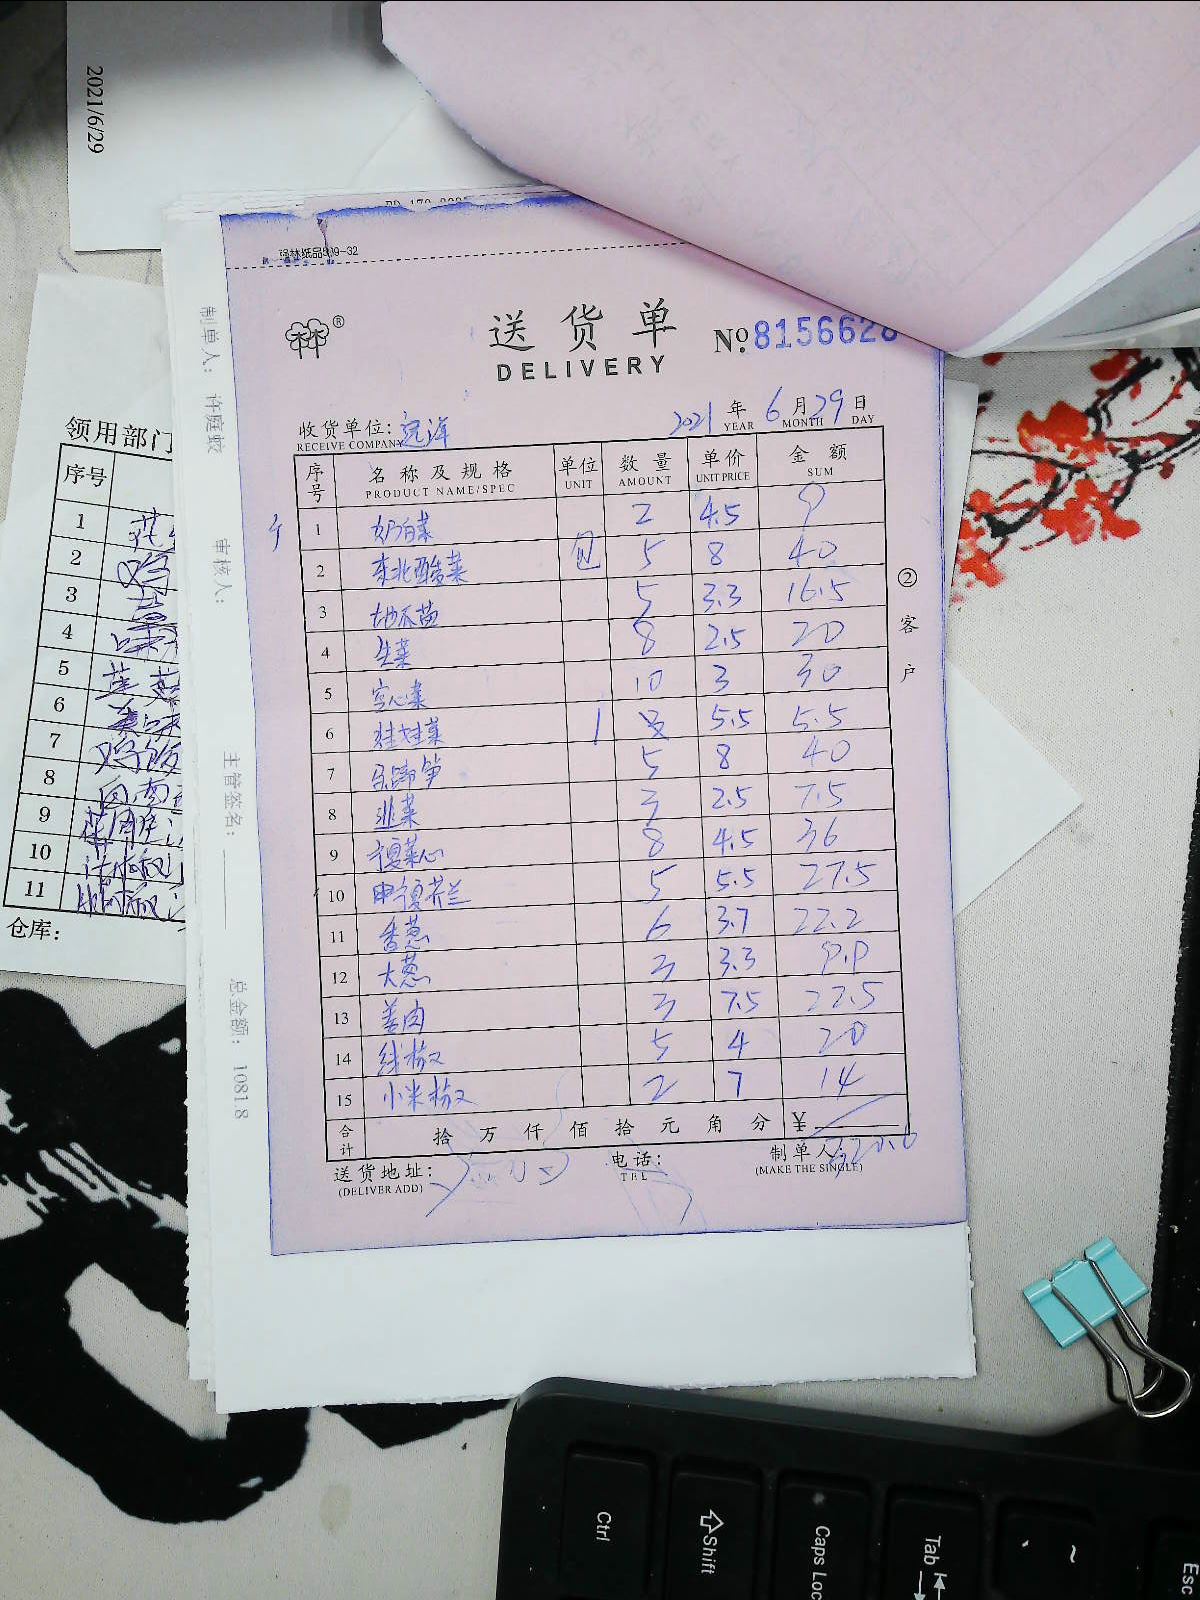 2021/6/29
强林纸品509-32
®
送货单
DELIVERY
No. 8156628
收货单位:
RECEIVE COMPANY
2021 年 6 月 29 日
YEAR MONTH DAY
序号 名称及规格 单位 数量 单价 金额
PRODUCT NAME/SPEC UNIT AMOUNT UNIT PRICE SUM
1 奶白菜 2 4.5 9
2 东北酸菜 包 5 8 40
3 地瓜苗 5 3.3 16.5
4 生菜 8 2.5 20
5 空心菜 10 3 30
6 娃娃菜 1 5.5 5.5
7 马蹄笋 5 8 40
8 韭菜 3 2.5 7.5
9 菜心 8 4.5 36
10 芥兰 5 5.5 27.5
11 香葱 6 3.7 22.2
12 大葱 3 3.3 9.9
13 姜肉 3 7.5 22.5
14 线椒 5 4 20
15 小米椒 2 7 14
合计 拾万仟佰拾元角分 ¥
送货地址:
(DELIVER ADD)
电话:
TEL
制单人:
(MAKE THE SINGLE)
②客户
制单人: 许庭蛟
审核人:
主管签名:
总金额: 1081.8
领用部门
序号
1
2
3
4
5
6
7
8
9
10
11
仓库:
Ctrl
Shift
Caps Loc
Tab
~
Esc